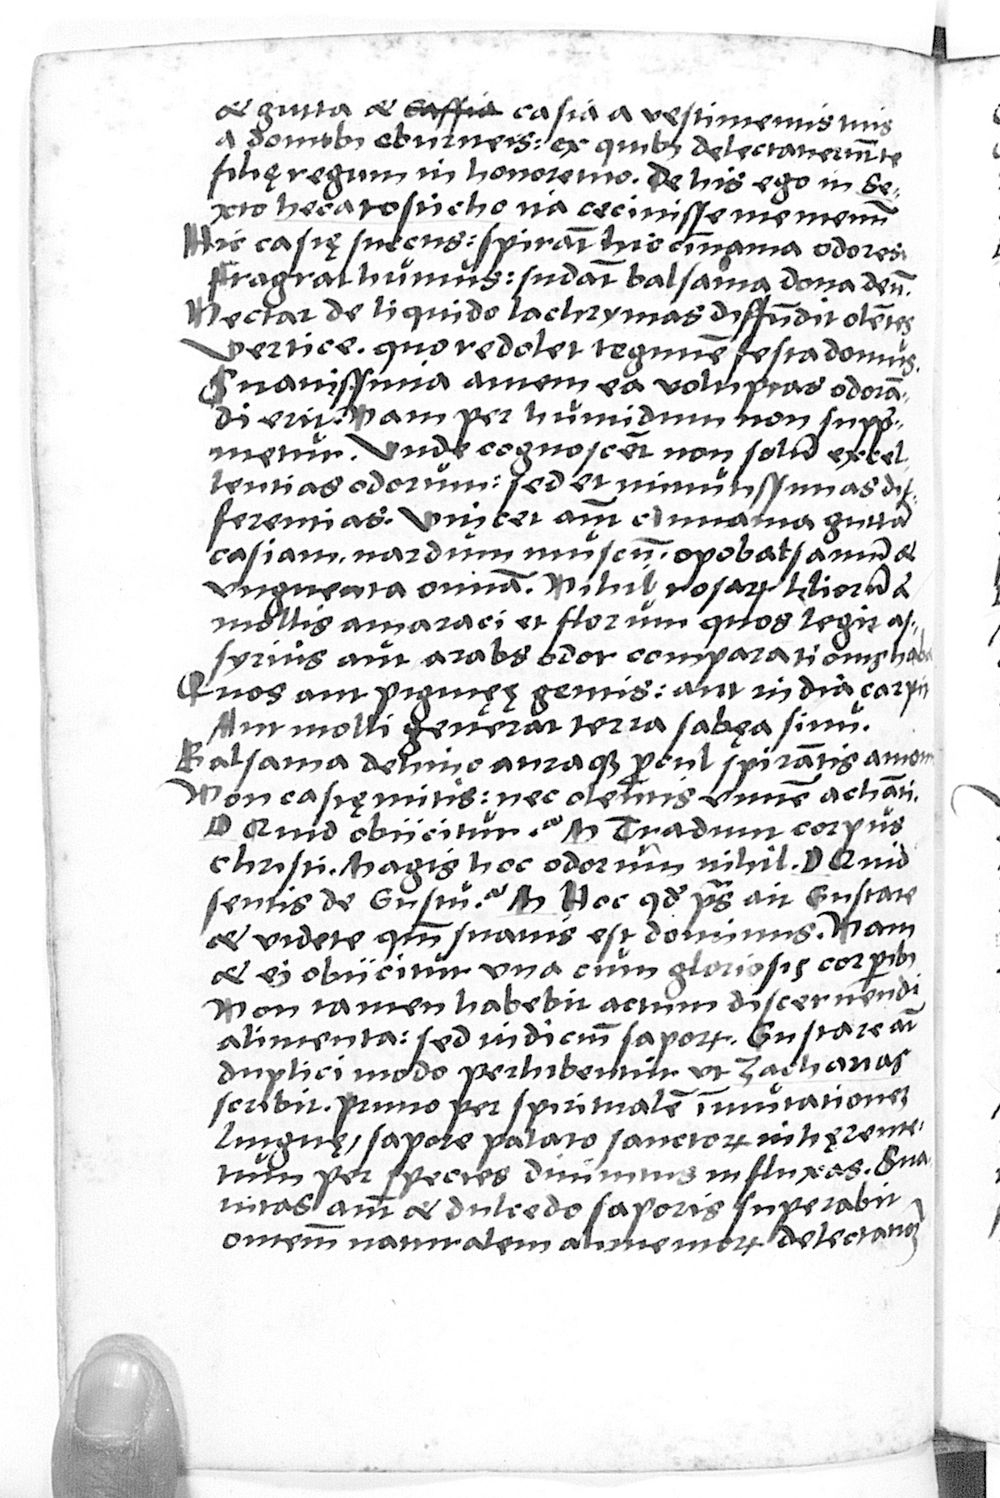 & gutta & cassia casia a vestimentis tuis
a domibꝯ eburneis: ex quibꝯ delectauerūt te
filię regum in honore tuo. De his ego in Se-
xto hecatosticho ita cecinisse me meminī
Hic casię succus: spirāt hic cīnama odores:
Fragrat humus: sudāt balsama dona deū.
Nectar de liquido lachrymas diffūdit olētes
Vertice. quo redolet tegmē festa domus.
Suauissima autem ea voluptas odorā-
di erit. Nam per humidum non supp̄-
metur. Vnde cognoscēt non solū excel-
lentias odorum: sed et minutissimas dif-
ferentias. Vincet aūt cinnama guttā
casiam. nardum muscū. opobalsamū &
vnguenta omnā. Nihil rosaꝝ liliorū &
mollis amaraci et florum quos legit as-
syrius aut arabs odor comparationis habe
Quos aut pigmęę gentis: aut india carpit
Aut molli generat terra sabęa sinu.
Balsama deniqꝫ auraqꝫ ꝓcul spirātis amomi
Non casię mitis: nec olentis vimē achāti.
D Quid obiicitur? M Tradunt corpus
christi. Magis hoc odorum nihil. D Quid
sentis de Gustu? M Hoc qď pͣs ait Gustare
& videte qm̄ suauis est dominus. Nam
& ei obiicitur vna cum gloriosis corꝑibꝯ
Non tamen habebit actum discernendi
alimenta: sed iudiciū sapoꝝ. Gustare aūt
duplici modo perhibentur vt Zacharias
scribit. Primo per spiritualē īmutationes
linguę, sapore palato sanctoꝝ inhęrente:
tum per species diuinitus influxas. Sua-
uitas aūt & dulcedo saporis superabit
omnem̄ naturalem alimentoꝝ delectationē